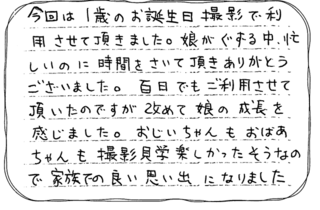 今回は1歳のお誕生日撮影で利
用させて頂きました。娘がぐずる中、忙
しいのに時間をさいて頂きありがとう
ございました。百日でもご利用させて
頂いたのですが改めて娘の成長を
感じました。おじいちゃんもおばあ
ちゃんも撮影見学楽しかったそうなの
で家族での良い思い出になりました